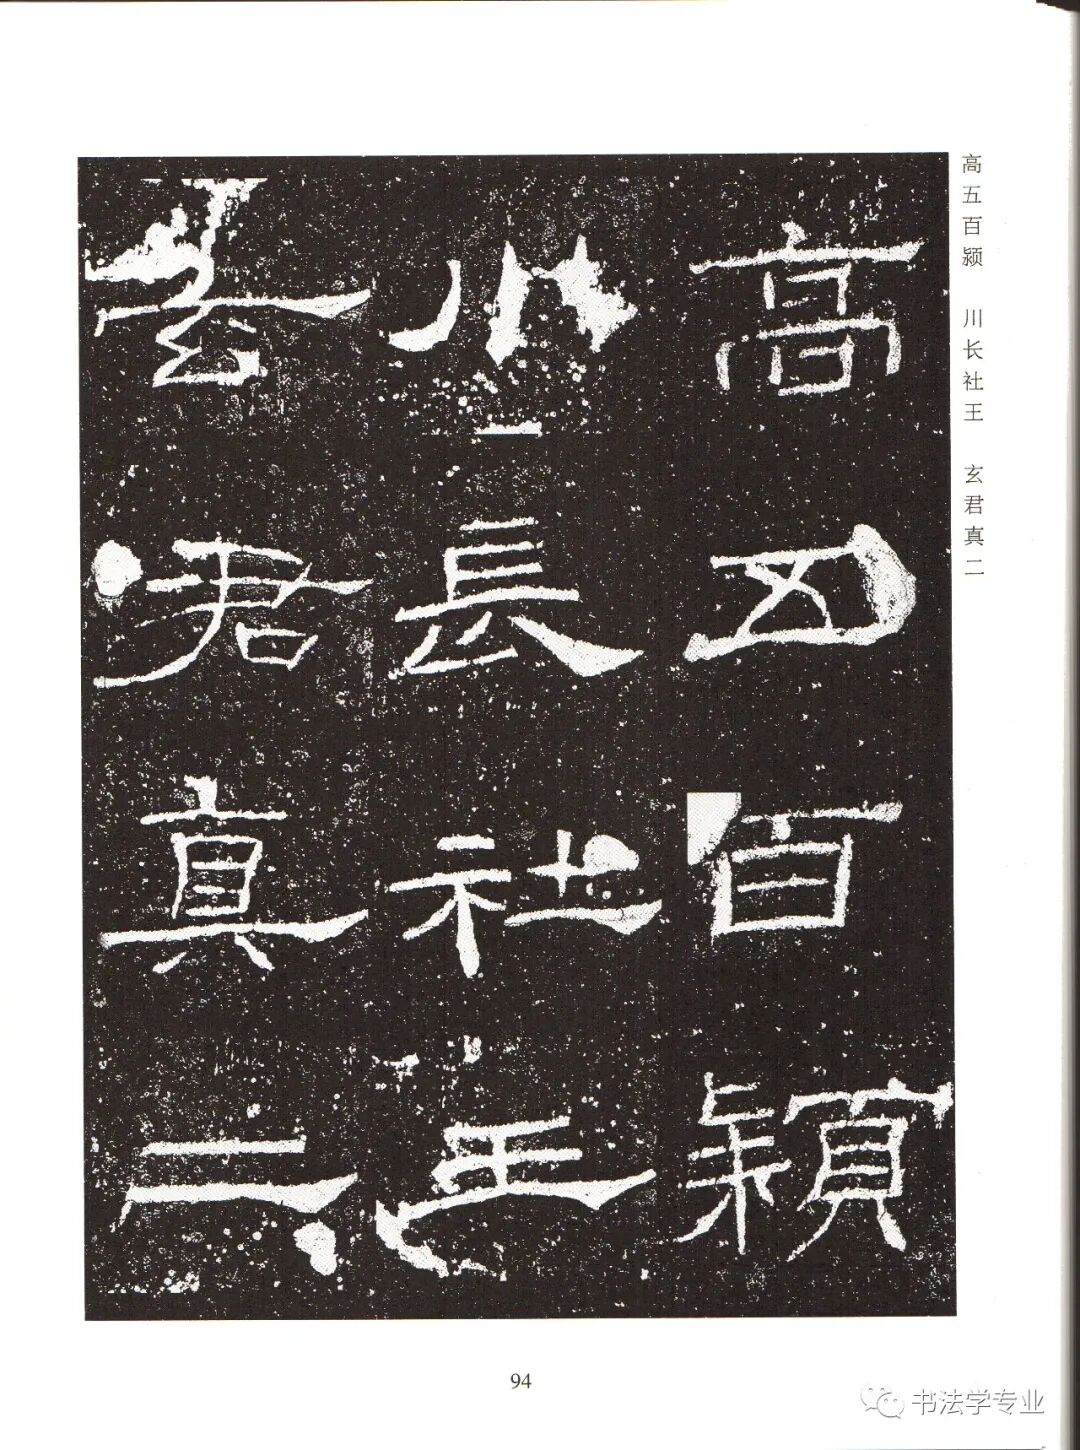 高五百颍
川長社王
玄君真二
高五百颍 川长社王 玄君真二
94
书法学专业